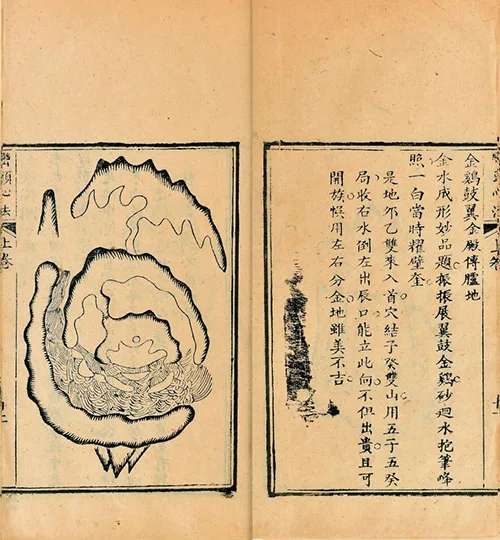 金鷄鼓翼金殿傳臚地
金水成形妙品題振振展翼鼓金鷄砂迴水抱筆峰
照一白當時耀壁奎
是地夘乙雙來入首穴結子癸雙山用五子五癸
局收右水倒左出辰口能立此向不但出貴且可
開族悞用左右分金地雖美不吉
巒頭心法 上卷